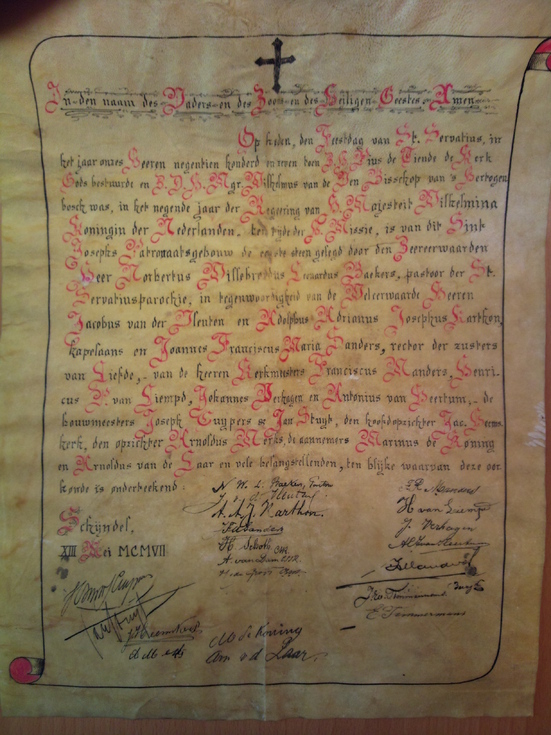 In den naam des Vaders en des Zoons en des Heiligen Geestes Amen
Op heden, den Feestdag van St. Servatius, in
het jaar onzes Heeren negentien honderd en zeven toen Z.H. Pius de Tiende de Kerk
Gods bestuurde en Z.D.H. Mgr. Wilhelmus van de Ven Bisschop van 's Hertogen
bosch was, in het negende jaar der Regeering van H. Majesteit Wilhelmina
Koningin der Nederlanden, ten tijde der H. Missie, is van dit Sint
Josephs Patronaatsgebouw de eerste steen gelegd door den Zeereerwaarden
Heer Norbertus Willebrordus Leonardus Baekers, pastoor der St.
Servatiusparochie, in tegenwoordigheid van de Weleerwaarde Heeren
Jacobus van der Vleuten en Adolphus Adrianus Josephus Karthon,
kapelaans en Joannes Franciscus Maria Sanders, rector der zusters
van Liefde, van de heeren Kerkmeesters Franciscus Manders, Henri-
cus van Liempd, Johannes Verhagen en Antonius van Heertum, de
bouwmeesters Joseph Cuypers & Jan Stuyt, den hoofdopzichter Jac.
kerk, den opzichter Arnoldus Merks, de aannemers Marinus de Koning
en Arnoldus van de Laar en vele belangstellenden, ten blijke waarvan deze oor
konde is onderteekend:
N. W. L. Baekers, Pastor
A. A. J. Karthon
Schijndel,
XIII Mei MCMVII
H van Liempd
J. Verhagen
Jos Cuypers
Jan Stuyt
E Timmermans
M de Koning
A Merks
Am v d Laar